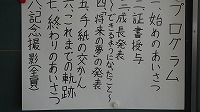 プログラム
一、始めのあいさつ
二、証書授与
三、成長発表
〜できるようになったこと〜
四、将来の夢の発表
五、手紙の交かん
六、これまでの軌跡
七、終わりのあいさつ
八、記念撮影(全員)